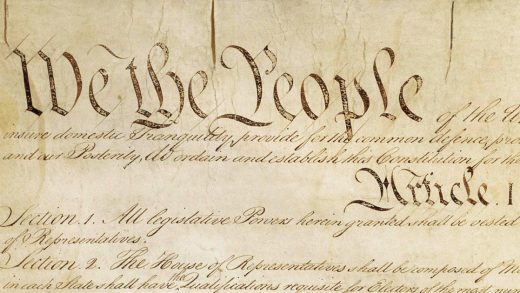 We the People of the Un
insure domestic Tranquility, provide for the common defence, pro
and our Posterity, do ordain and establish this Constitution for the
Article. I
Section. 1. All legislative Powers herein granted shall be vested
of Representatives.
Section. 2. The House of Representatives shall be composed of M
in each State shall have the Qualifications requisite for Electors of the most num